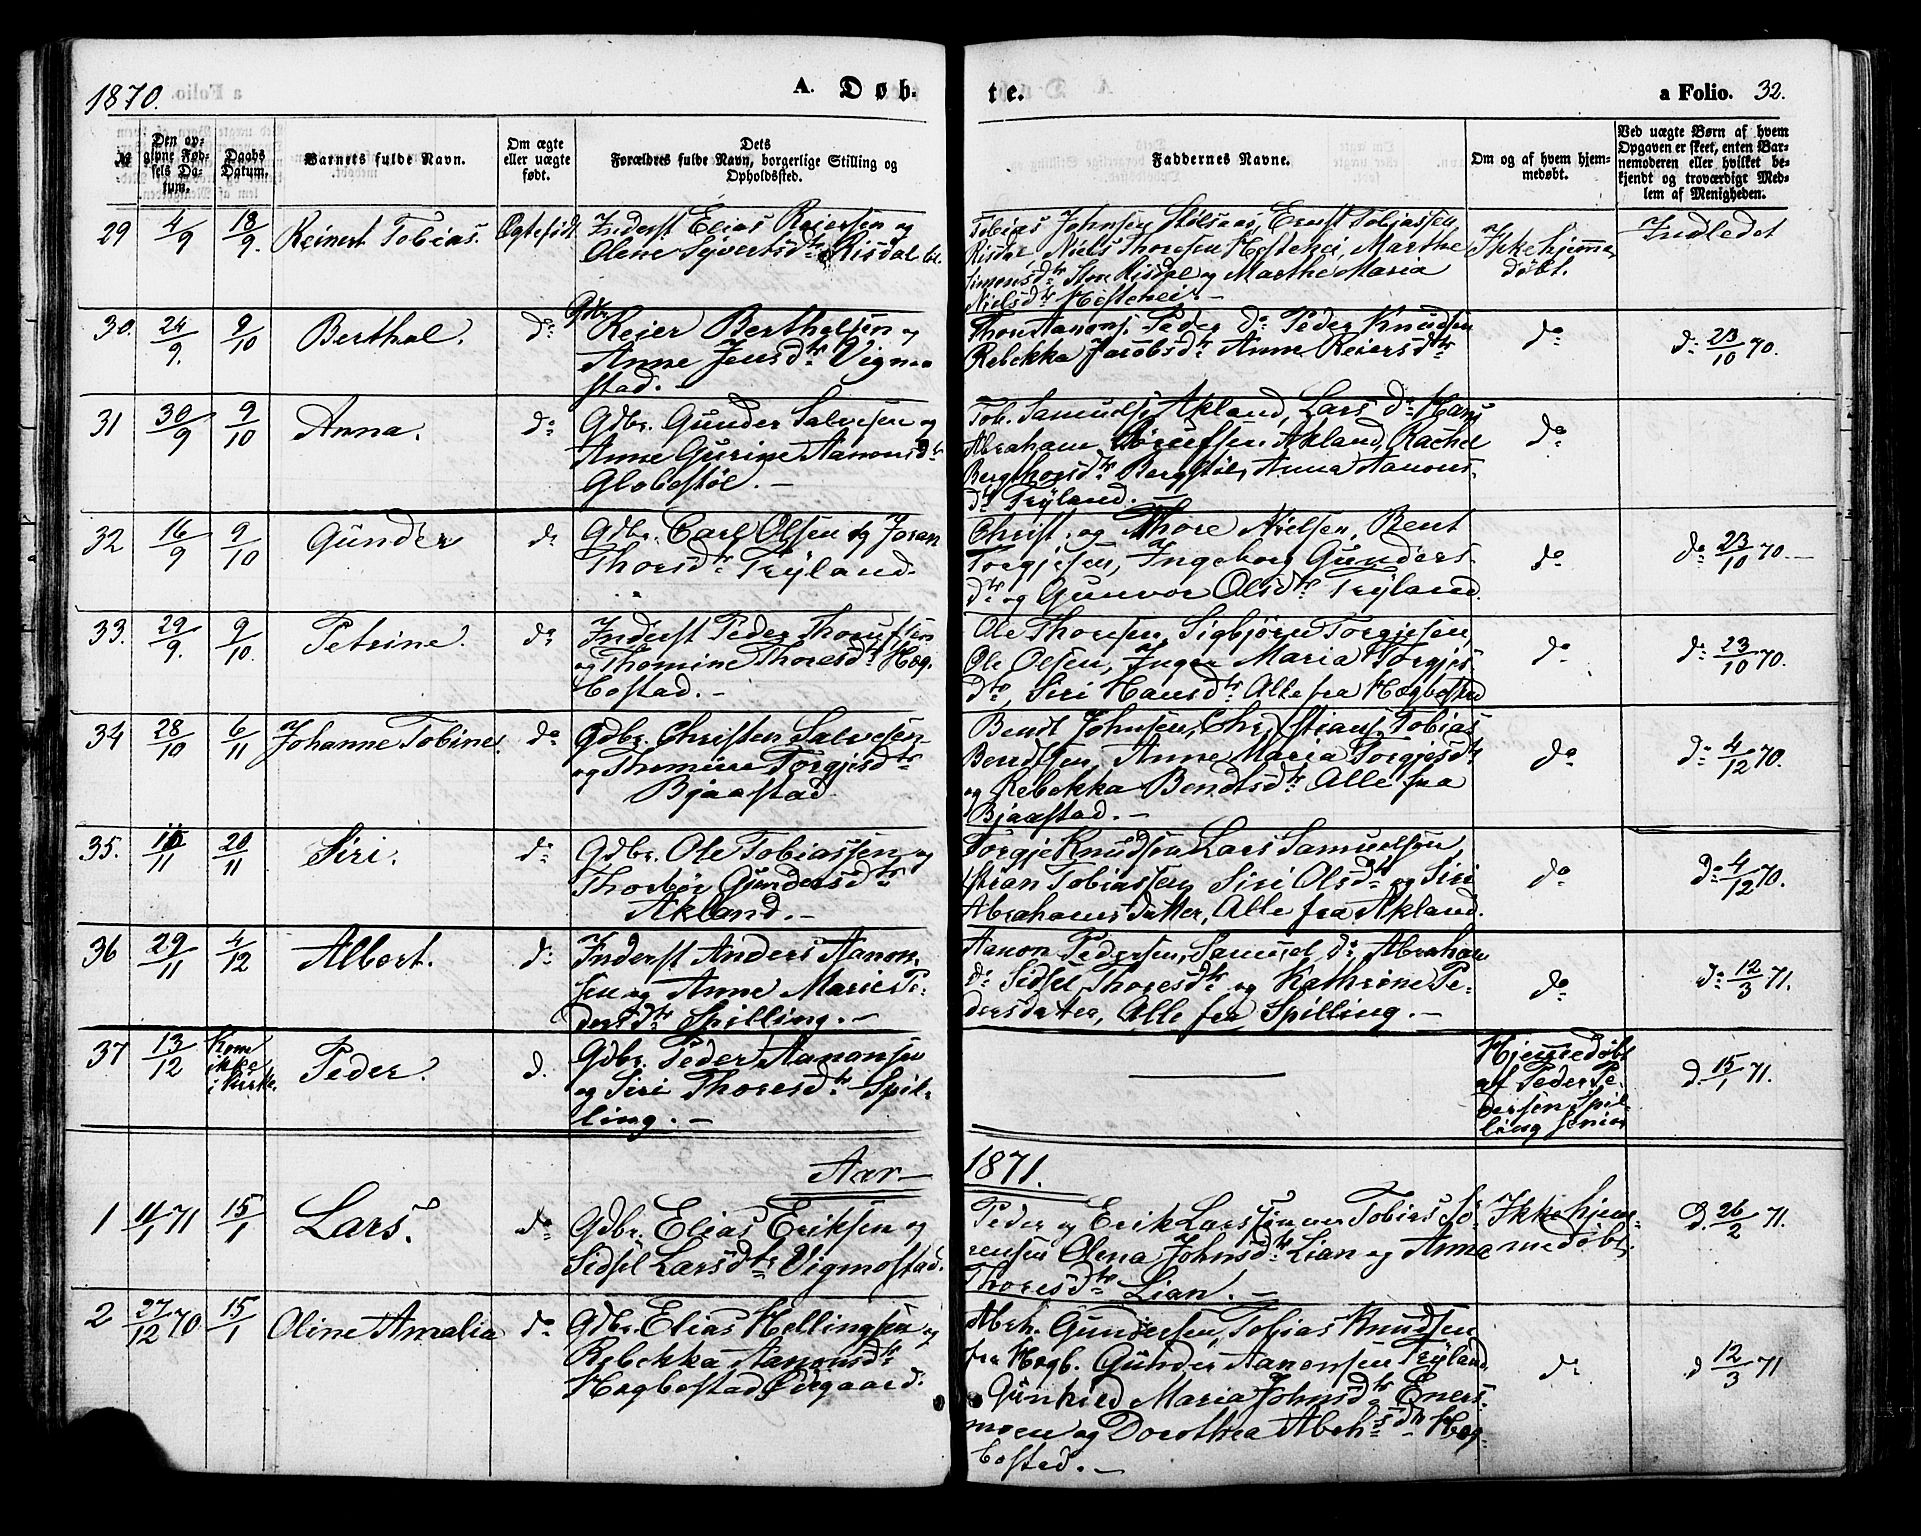 1870.
A. Døb-
te.
a Folio. 32.
№
Den op-
givne Fød-
sels Da-
tum.
Daabs
Datum.
Barnets fulde Navn.
Om ægte
eller uægte
født.
Dets
Forældres fulde Navn, borgerlige Stilling og
Opholdssted.
Faddernes Navne.
Om og af hvem hjem-
medøbt.
Ved uægte Børn af hvem
Opgaven er skeet, enten Bar-
nemoderen eller hvilket be-
kjendt og troværdigt Med-
lem af Menigheden.
29 4/9 18/9. Reinert Tobias. Ægtefødt
Inderst Elias Reiersen og
Olene Sivertsdtr Risdal
Tobias Johnsen Stølsaas, Ernst Tobiassen,
Risdal Niels Thoresen Hestehei, Marthe
Simonsdtr Risdal og Marthe Maria
Nielsdtr Hestehei. -
Ikke hjemme
døbt.
Indledet
30. 24/9. 9/10 Berthel. do
Gdbr. Reier Berthelsen og
Anne Jensdtr Vigmo
stad. -
Thore Aanons. Peder do Peder Knudsen
Rebekka Jacobsdtr Anne Reiersdtr
do
do 23/10 70.
31 30/9 9/10 Anna. do
Gdbr. Gunder Salvesen og
Anne Gurine Aanonsdtr
Globestøl. -
Tob. Samuelse Akland, Lars do Hans
Abraham Akland, Rachel
Bergthorsdtr Bergstøl, Anna Aanons-
dtr Trÿland. -
do
32 16/9 9/10 Gunder do
Gdbr. Carl Olsen og Joran
Thorsdtr Trÿland.
Christ. og Thore Nielsen, Bent
Torgjesen, Ingeborg Gunders-
dtr og Gunvor Olsdtr Trÿland.
do
do 23/10 70. -
33. 29/9. 9/10. Petrine. do
Inderst Peder Thoresen
og Thomine Thoresdtr Høg-
bostad. -
Ole Thoresen, Sigbjørn Torgjesen,
Ole Olsen, Inger Maria Torgjes-
dtr, Siri Hansdtr Alle fra Høgbostad
do
do 23/10 70.
34 28/10 6/11 Johanne Tobine. do
Gdbr. Christen Salvesen
og Thomine Torgjesdtr
Bjaastad
Bendt Johnsen, Christians. Tobias
Bendtsen, Anne Maria Torgjesdtr
og Rebekka Bendtsdtr Alle fra
Bjaastad. -
do
do 4/12 70.
35. 10/11 20/11 Siri. do
Gdbr. Ole Tobiassen og
Thorbør Gundersdtr
Akland. -
Torgje Knudsen Lars Samuelsen,
Stian Tobiassen, Siri Olsdtr og Siri
Abrahamsdatter, Alle fra Akland.
do
do 4/12 70.
36 29/11 4/12 Albert. do
Inderst Anders Aanon-
sen og Anne Marie Pe-
dersdtr Spilling. -
Aanon Pedersen, Samuel do Abraham
do Sidsel Thoresdtr og Kathrine Pe-
dersdatter, Alle fra Spilling. -
do
do 12/3 71.
37 13/12 Kom
ikke
i Kirke. Peder. d.
Gdbr. Peder Aanonsen
og Siri Thoresdtr Spil-
ling. -
Hjemmedøbt
af Peder Pe-
dersen Spil-
ling senior
d. 15/1 71.
Aar 1871.
1 4/1 71 15/1 Lars. do
Gdbr. Elias Eriksen og
Sidsel Larsdtr Vigmostad.
Peder og Erik Larssønner Tobias Sø-
rensen Olena Johnsdtr Lian og Anne
Thoresdtr Lian. -
Ikke hjem-
medøbt.
d. 26/2 71.
2 27/12 70. 15/1 Oline Amalia do
Gdbr. Elias Hellingsen og
Rebekka Aanonsdtr
Høgbostad Ødegaard.
Abrh. Gundersen, Tobias Knudsen
fra Høgb. Gunder Aanonsen Trÿland,
Gunhild Maria Johnsdtr Eners-
moen og Dorothea Abrhsdtr Høg-
bostad. -
do
d 12/3 71